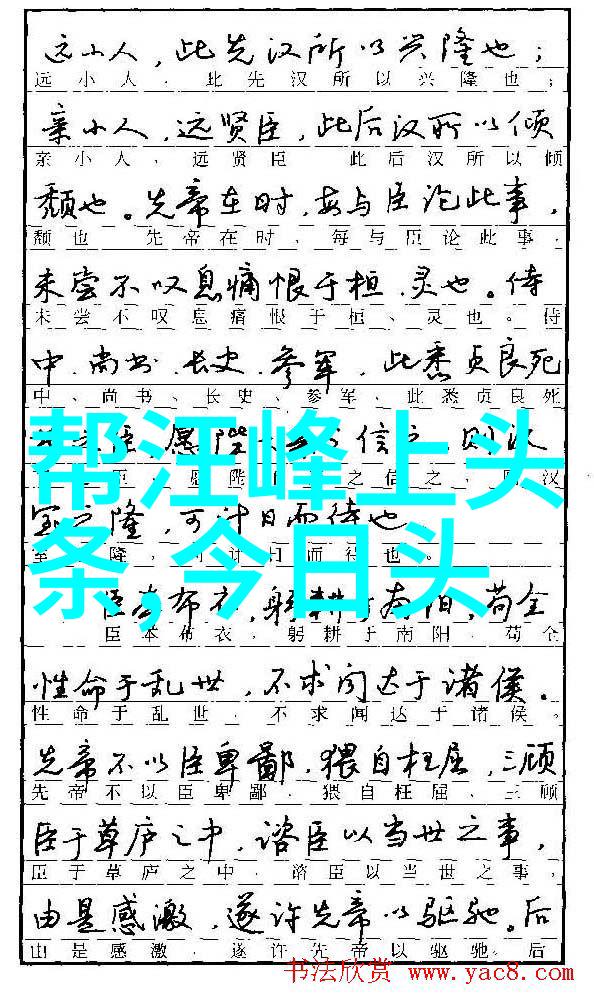 远小人，此先汉所以兴隆也；
远小人，此先汉所以兴隆也；
亲小人，远贤臣，此后汉所以倾
亲小人，远贤臣 此后汉所以倾
颓也。先帝在时，每与臣论此事，
颓也 先帝在时，每与臣论此事，
未尝不叹息痛恨于桓、灵也。侍
未尝不叹息痛恨于桓、灵也。侍
中、尚书、长史、参军，此悉贞良死
中、尚书、长史、参军，此悉贞良死
臣，愿陛 信之，则汉
臣，愿陛 之信之， 汉
帮汪峰上头
室之隆，可计日而待也
室 隆，可计日而待也。
条,今日头
臣本布衣，躬耕于南阳，苟全
臣本布衣，躬耕于南阳，苟全
性命于乱世，不求闻达于诸侯。
性命于乱世，不求闻达于诸侯。
先帝不以臣卑鄙，猥自枉屈，三顾
先帝不以臣卑鄙，猥自枉屈、三顾
臣于草庐之中，谘臣以当世之事，
臣于草庐之中，谘臣以当世之事，
由是感激，遂许先帝以驱驰。后
由是感激，遂许先帝以驱驰。后
书法欣赏 www.yac8.com